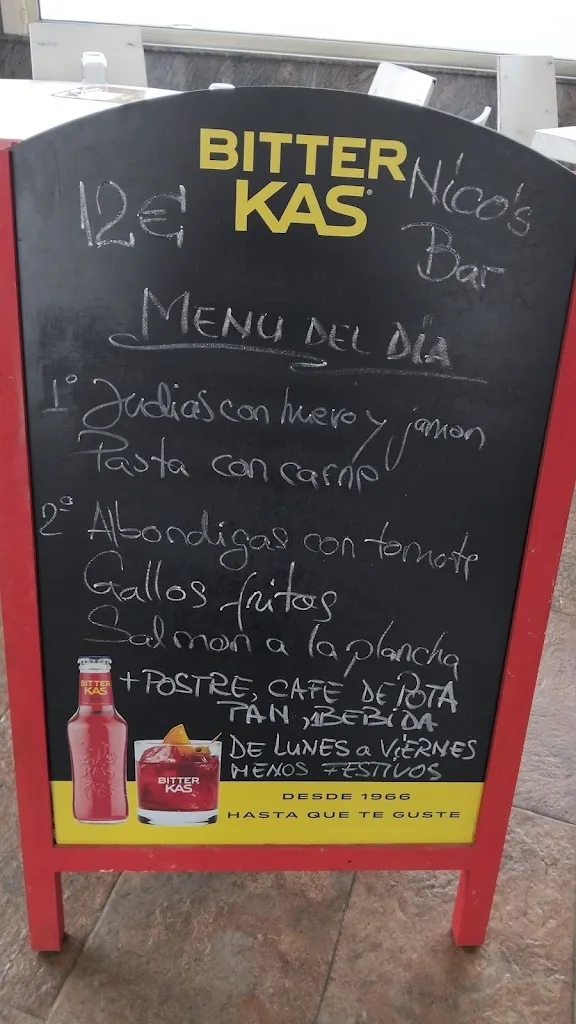 BITTER
KAS
12€
Nico's
Bar
MENU DEL DÍA
1º Judias con huevo y jamon
Pasta con carne
2º Albondigas con tomate
Gallos fritos
Salmon a la plancha
+ POSTRE, CAFE DE POTA
PAN, 1 BEBIDA
DE LUNES a ViERNES
MENOS FESTIVOS
BITTER
KAS
BITTER
KAS
DESDE 1966
HASTA QUE TE GUSTE